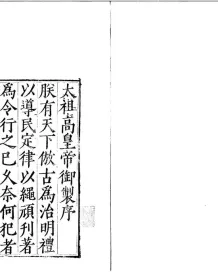 太祖高皇帝御製序
朕有天下倣古爲治明禮
以導民定律以繩頑刋著
爲令行之已久奈何犯者